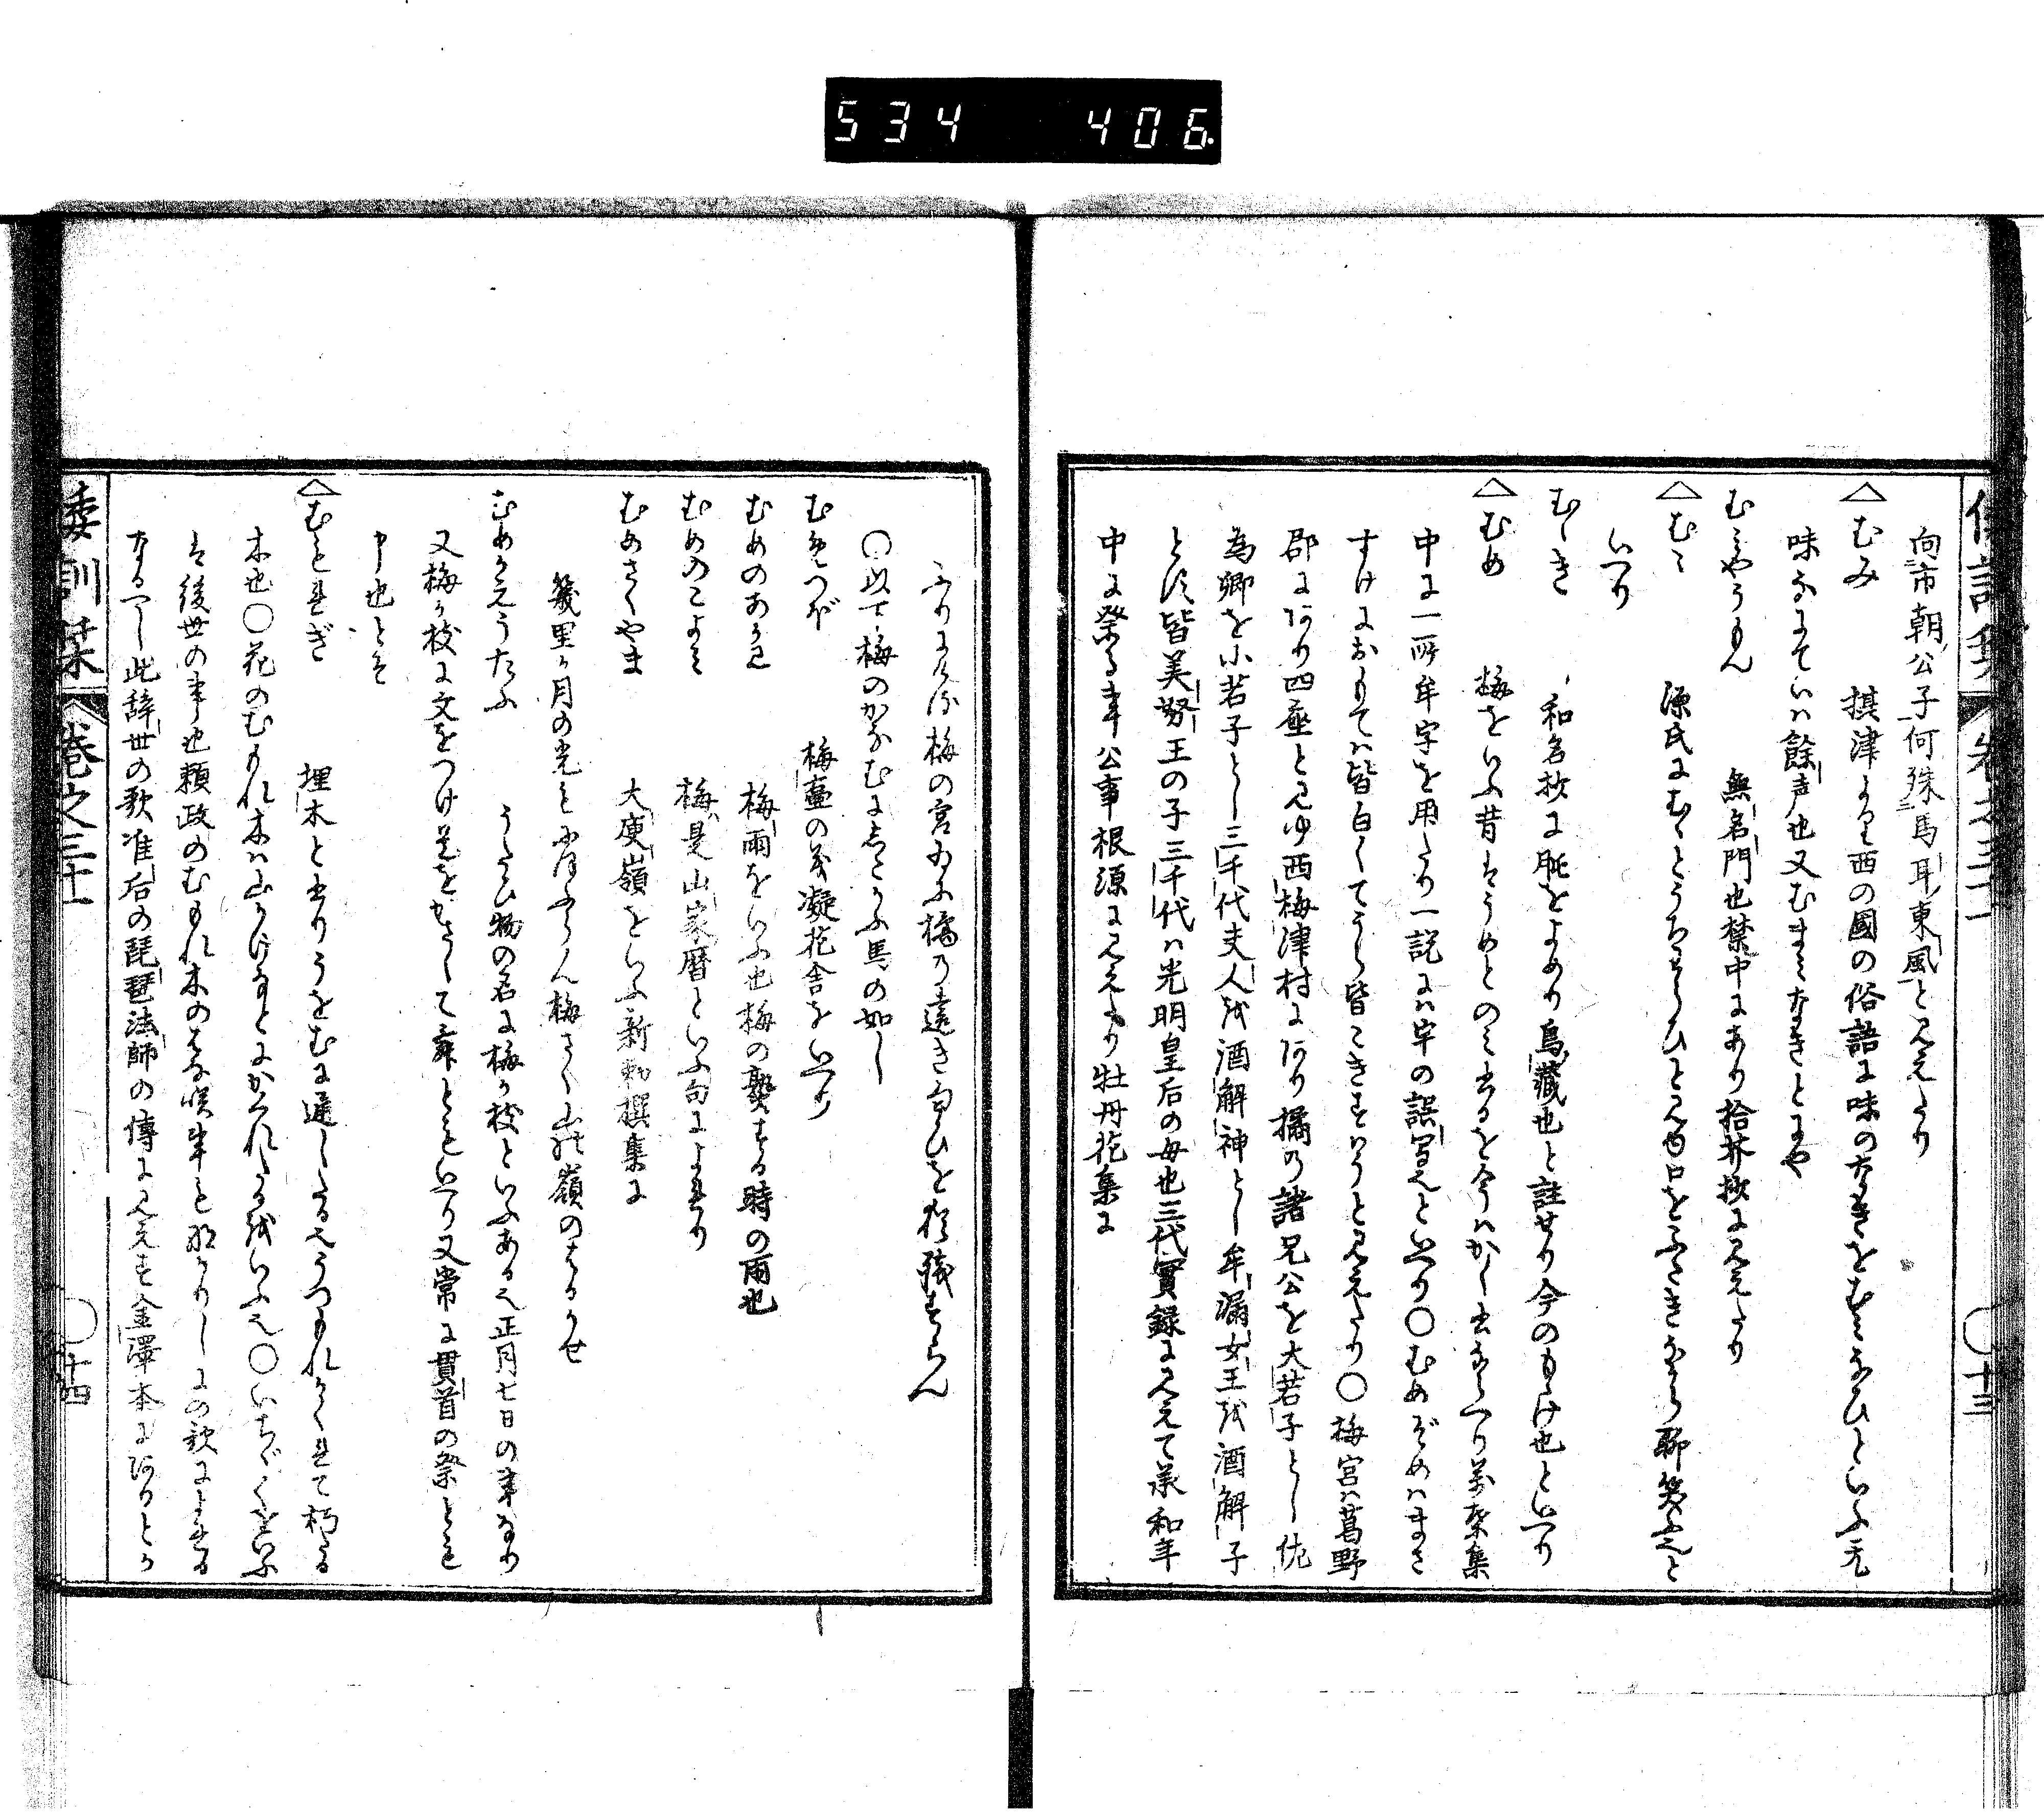 534 406
倭訓栞 巻之三十一 〇十三
向市朝公子何殊馬耳東風と見えたり
△むみ 摂津より西の國の俗語に味のなきをむみなひといふ无
味なにてハ餘声也又むまみなきとにや
むみやうもん 無名門也禁中にあり拾芥抄に見えたり
△むゝ 源氏にむゝとうちわらひと見ゆ口をふさきなから聊笑家と
いへり
むしき 和名抄に毦をよめり鳥藏也と註せり今のもうけ也といへり
△むめ 梅をいふ昔はうめとのミ書るを今ハかく書ならへり萬葉集
中に一所牟字を用たり一説にハ宇の誤写といへり〇むめぞめハまさ
すけにおもてハ皆白くてうら皆こきすはうと見えたり〇梅宮ハ葛野
郡にあり四座と見ゆ西梅津村にあり橘乃諸兄公を大若子とし佐
為卿を小若子とし三千代夫人を酒解神とし牟漏女王を酒解子
とす皆美努王の子三千代ハ光明皇后の母也三代實録に見えて承和年
中に祭る事公事根源に見えたり牡丹花集に
ふりにける梅の宮ゐに橘乃遠き匂ひを猶残すらん
〇以下梅のかなむにしたかふ馬の如し
むめつぼ 梅壷の義凝花舎をいへり
むめのあめ 梅雨をいふ也梅の熟する時の雨也
むめのこよみ 梅是山家暦といふ句によれり
むめさくやま 大庾嶺をいふ新勅撰集に
幾里か月の光も匂ふらん梅さく山の嶺のはるかせ
むめかえうたふ うたひ物の名に梅か枝といふあり正月七日の事なり
又梅か枝に文をつけ花をかさして舞ともいへり又常に貫首の祭とも
申也とそ
△むもれぎ 埋木と書りうをむに通したる也うつもれかくれて朽たる
木也〇花のむもれ木ハ山かけなとにかくれたるをいふ也〇いちゞくをいふ
は後世の事也頼政のむもれ木のはな咲事も那かりしにの歌によれる
なるへし此辞世の歌准后の琵琶法師の傳に見えす金澤本にありとか
倭訓栞 巻之三十一 〇十四